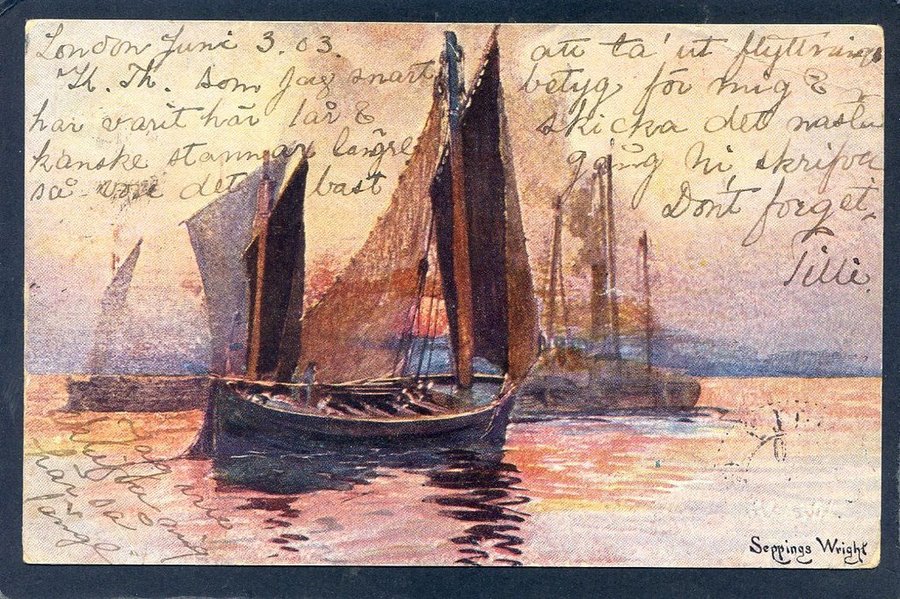 London Juni 3.03.
Kl. Th. som jag snart
har varit här 1 år &
kanske stannar längre
så vore det bäst
att ta' ut flyttnings
betyg för mig &
skicka det nästa
gång Ni skrifva
Don't forget.
Tille
så
länge
Seppings Wright